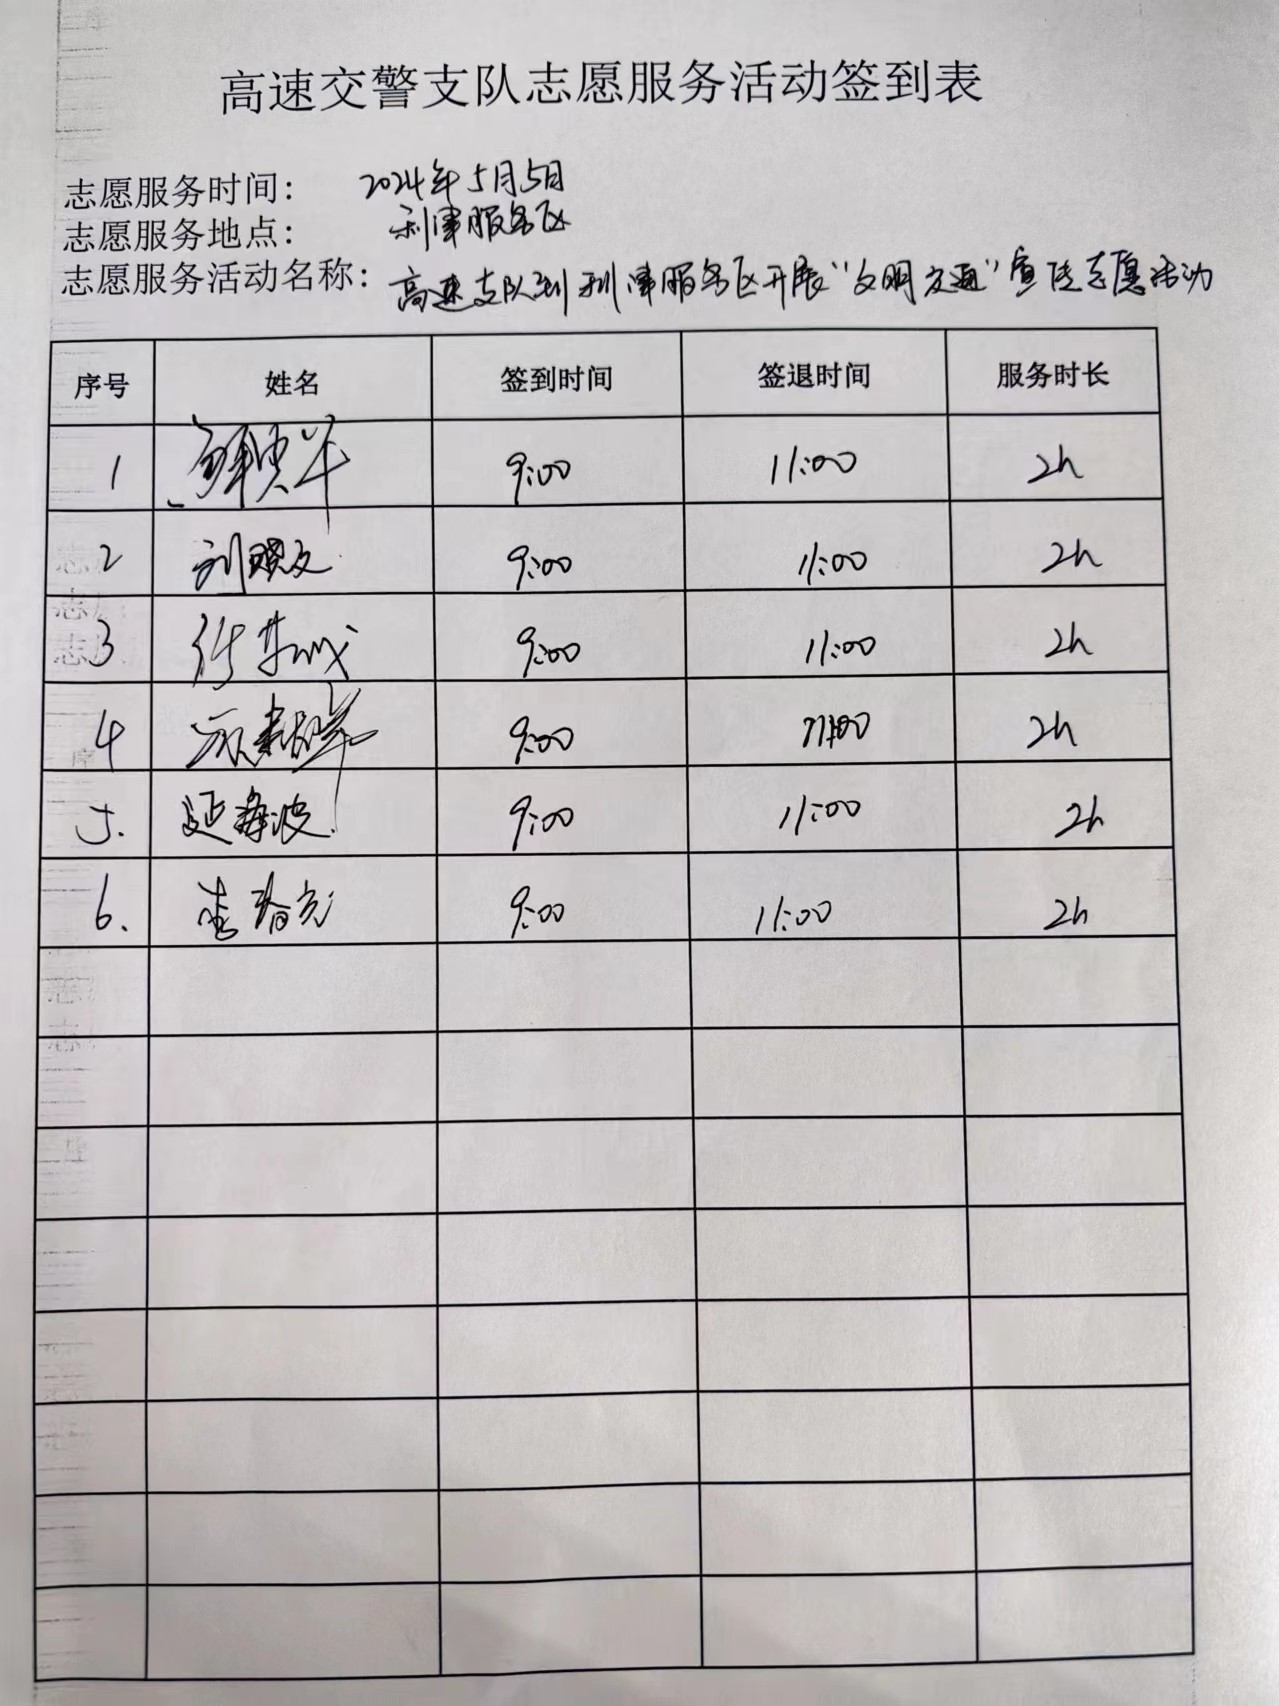 高速交警支队志愿服务活动签到表
志愿服务时间： 2024年5月5日
志愿服务地点： 利津服务区
志愿服务活动名称：高速支队到利津服务区开展“文明交通”宣传志愿活动
序号 姓名 签到时间 签退时间 服务时长
1 9:00 11:00 2h
2 刘晓文 9:00 11:00 2h
3 9:00 11:00 2h
4 9:00 11:00 2h
5. 延春波 9:00 11:00 2h
6. 李春光 9:00 11:00 2h